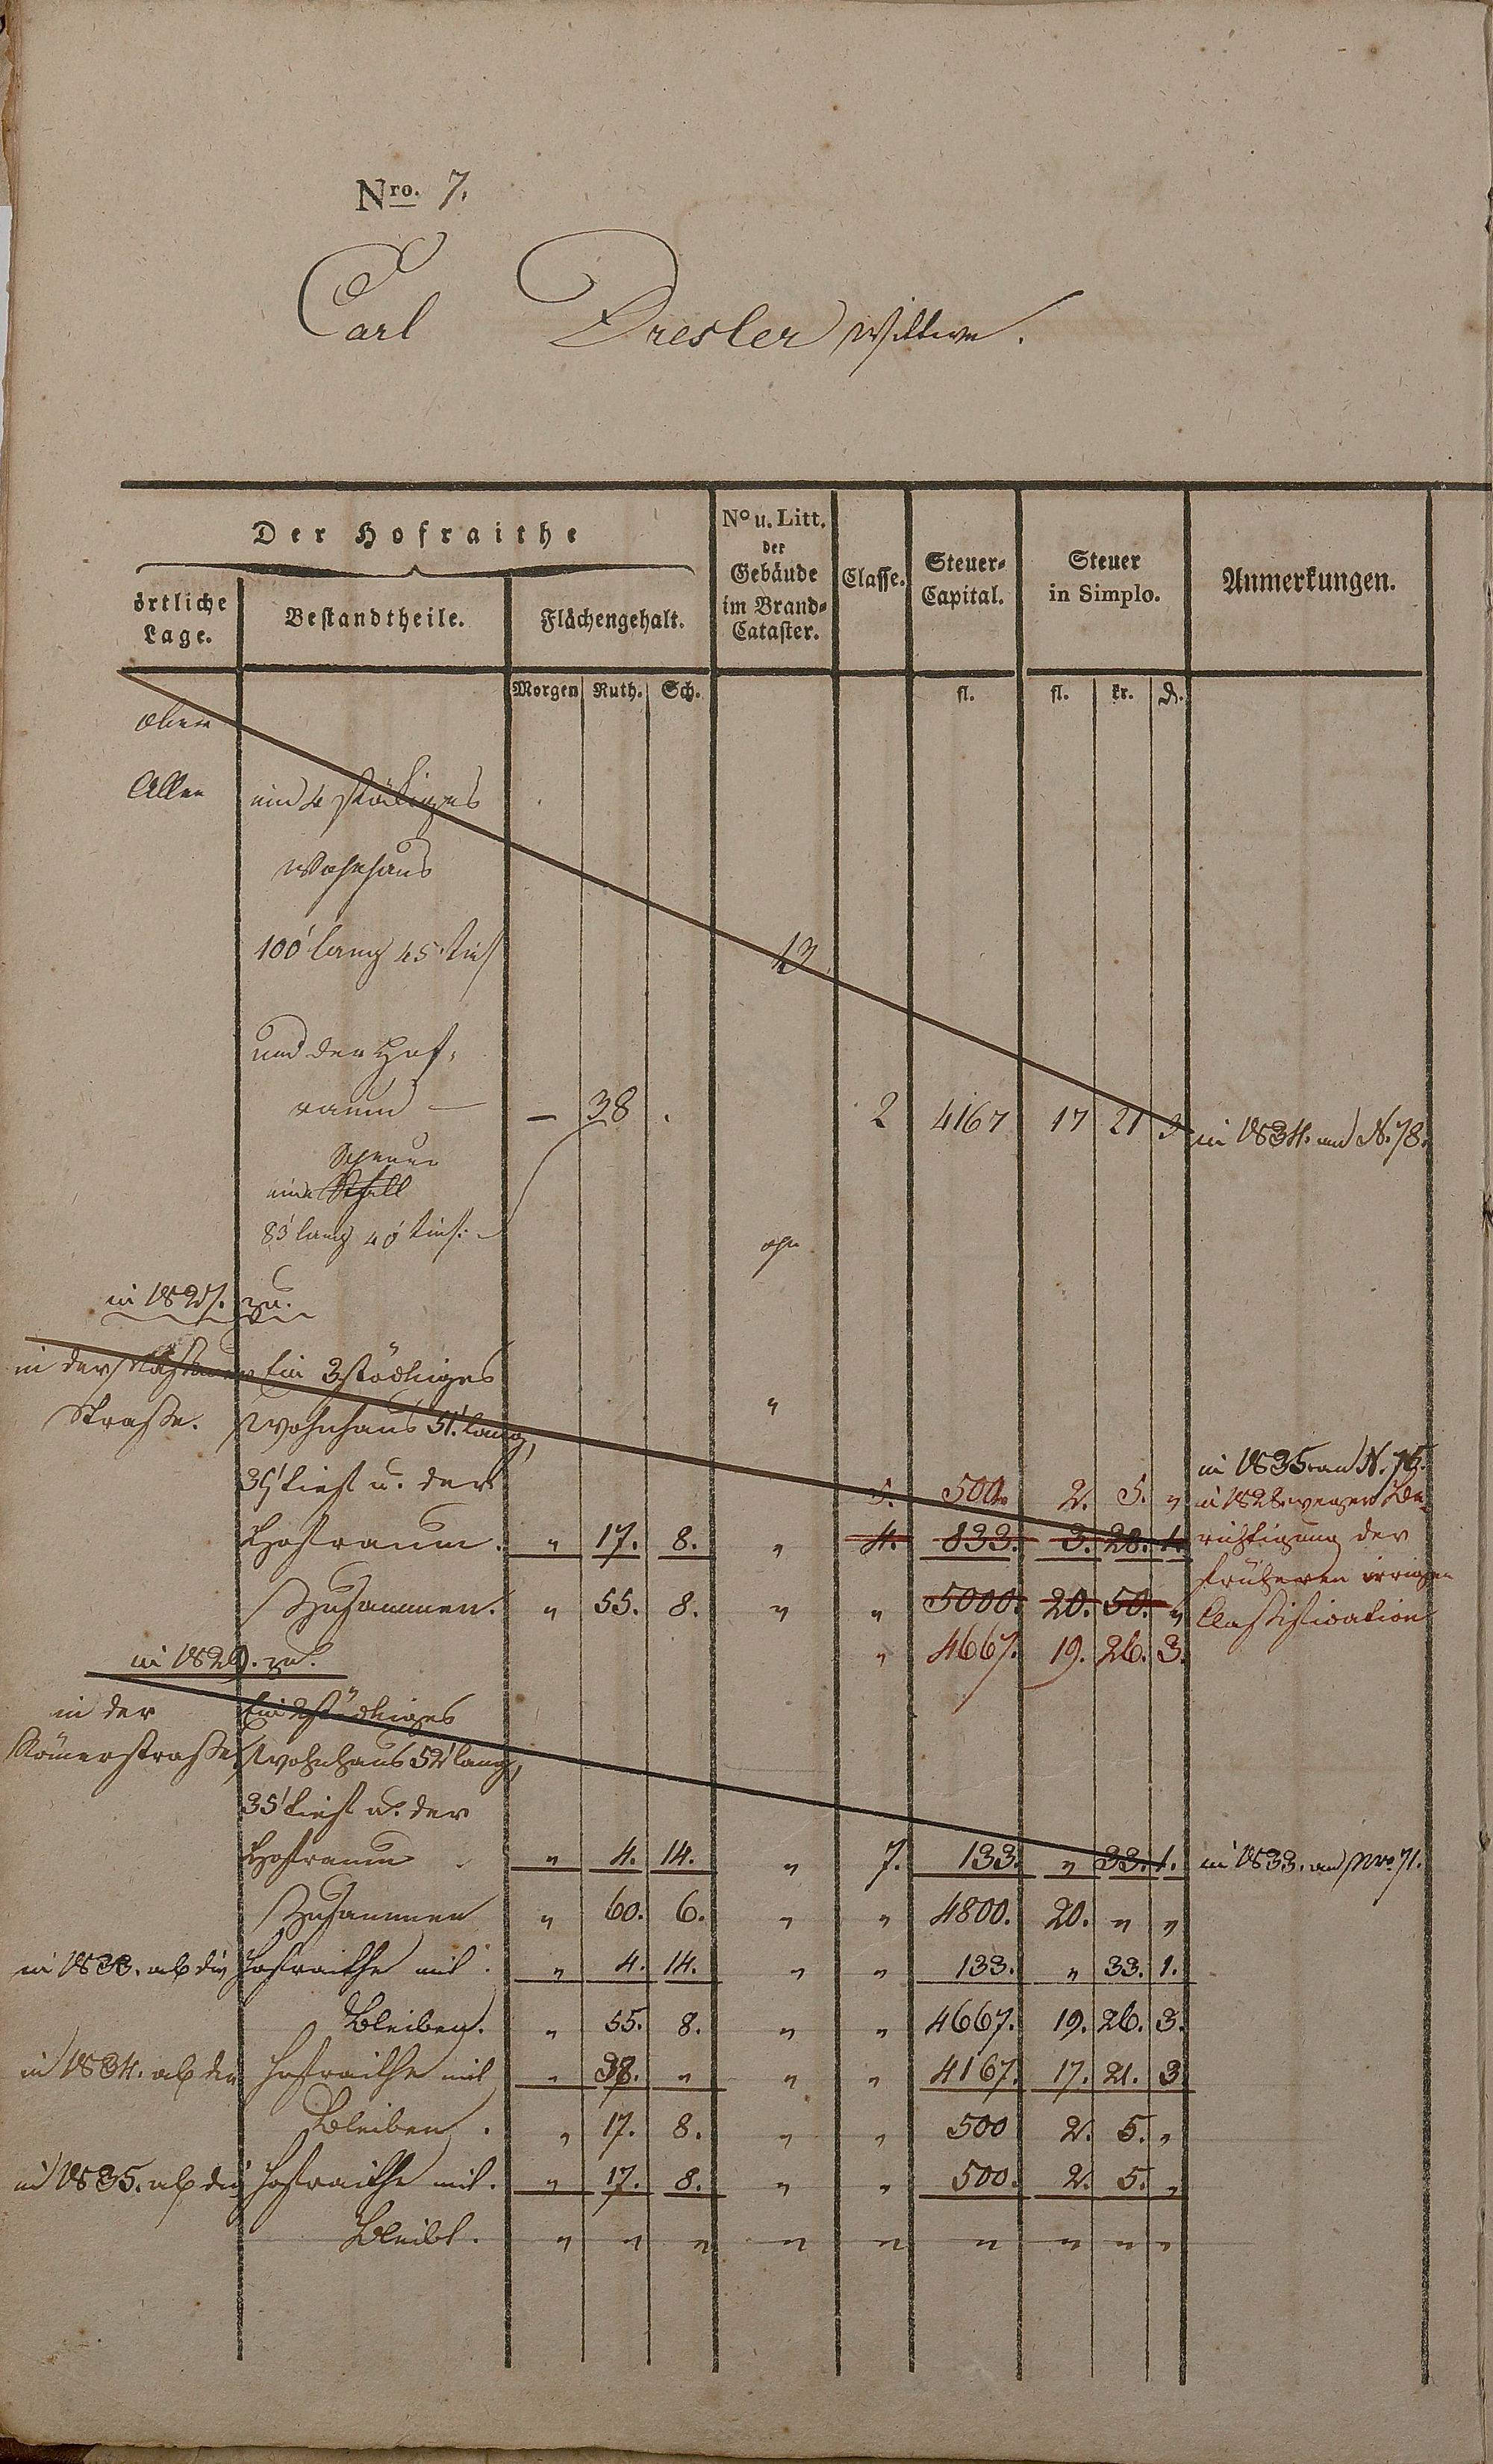 Nro. 7.
Carl Dresler Wittwe.
Der Hofraithe
örtliche Lage.
Bestandtheile.
Flächengehalt.
No u. Litt. der Gebäude im Brand-Cataster.
Classe.
Steuer-Capital.
Steuer in Simplo.
Anmerkungen.
Morgen Ruth. Sch. fl. fl. kr. d.
Allee ein 4 stökiges
Wohnhaus
100' lang 45' tief 13
und der Hof-
raum — — 38 . 2 4167 17 21 3 in 1834. an N. 78.
Scheuer
eine Stall
83' lang 40' tief.
in 1827. zu.
in der Ein 3stöckiges
Straße. Wohnhaus 51' lang, "
tief u. der 5. 500. 2. 5. " in 1835 an N. 75.
Hofraum. " 17. 8. " 4. 833. 3. 28. 1. in 1828 wegen Be-
richtigung der
früheren irrigen
Classification
Zusammen. " 55. 8. " " 5000. 20. 50. "
" 4667. 19. 26. 3.
in 1829. zu.
in der Ein 2stöckiges
Römerstraße Wohnhaus 52' lang,
35' tief u. der
Hofraum " 4. 14. " 7. 133. " 33. 1. in 1833. an Nro. 71.
Zusammen " 60. 6. " " 4800. 20. " "
in 1833. ab die Hofraithe mit " 4. 14. " " 133. " 33. 1.
Bleiben. " 55. 8. " " 4667. 19. 26. 3.
in 1834. ab die Hofraithe mit " 38. " " " 4167. 17. 21. 3
Bleiben. " 17. 8. " " 500 2. 5. "
in 1835. ab die Hofraithe mit. " 17. 8. " " 500. 2. 5. "
Bleibt. " " " " " " " " "